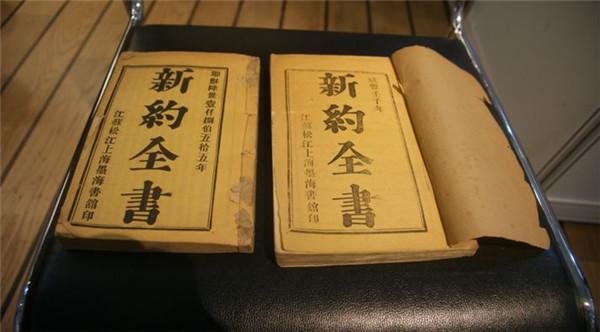 耶穌降世壹仟捌佰五拾五年
新約全書
江蘇松江上海墨海書館印
咸豐壬子年
新約全書
江蘇松江上海墨海書館印